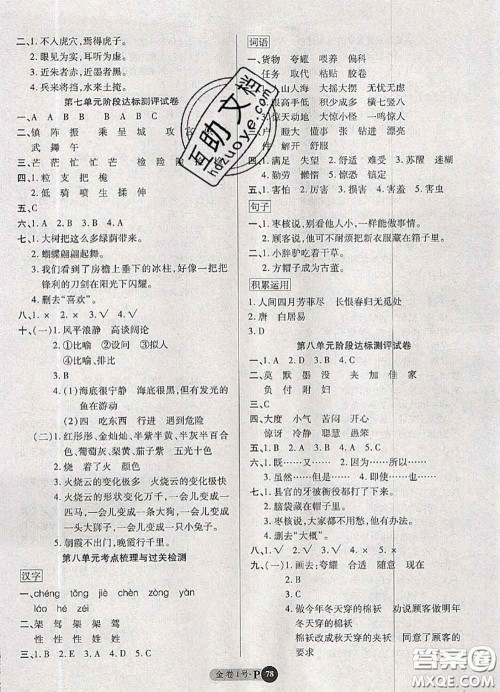 二、1. 不入虎穴，焉得虎子。
2. 眼见为实，耳听为虚。
3. 近朱者赤，近墨者黑。
4. 兵来将挡，水来土掩。
第七单元阶段达标测评试卷
一、A A B B A B
二、镇 阵 振 乘 呈 城 攻
武 舞 午
三、芒 茫 忙 茫 检 险
四、1. 粒 支 把 桅
2. 低 骑 喷 生 揉 伸
五、C
六、1. A 2. B 3. A 4. B
七、1. 大树把这么多绿荫带来。
2. 蝴蝶翩翩起舞。
3. 我们看到了房檐上垂下的冰柱，好像一把把
锋利的刀剑在阳光下闪耀。
4. 删去“喜欢”。
八、× √ √ × √
十、(一)1. 风平浪静 高谈阔论
2. ①比喻 ②比喻
3. ①× ②×
4. (1)海底很宁静 海底很黑，但有发光的
鱼在游动
(2)四 吃东西 行进 遇到危险
(二)1. 红彤彤、金灿灿、半紫半黄、半灰半百合
色、葡萄灰、梨黄、茄子紫
2. 烧 着了火 颜色
3. 火烧云的变化极多 火烧云的变化极快
4. 火烧云的形状变化万千，一会儿变成一
匹马，一会儿变成一只大狗，一会儿变成
一头大狮子，一会儿变成一只小兔子。
5. 朝霞不出门，晚霞行千里。
第八单元考点梳理与过关检测
汉字
一、chéng tǒng jiē chèn zhēn yàn
láo hé zéi
二、架 驾 架 架 驾
性 性 性 姓 姓
词语
一、货物 夸耀 喂养 偏科
任务 取代 粘贴 胶卷
人山人海 大摇大摆 无忧无虑
眼高手低 积少成多 横七竖八
惊喜交加 一唱一和
门 瞪 懂 事 张 钻进 漂亮
件 解开 舒服
四、1. 满足 失望 2. 舒适 难受 3. 苏醒 迷糊
4. 勤劳 懒惰 5. 惊慌 恐惧
五、1. 害怕 2. 厉害 3. 利害 4. 害羞
句子
一、1. 枣核说，别看他人小，一样能做事情。
2. 顾客说，他可不耐烦把新衣服藏在箱子里。
二、1. 小胖驴吃着干草。
2. 方帽子成为古董。
积累运用
一、1. 人间四月芳菲尽 长恨春归无觅处
2. 唐 白居易
3. D
第八单元阶段达标测评试卷
一、1. A 2. D 3. C 4. B
二、莫 默 墨 没 夹 加 佳 家
负 付 附 妇
三、C
四、大度 小气 苦闷 开心
惊讶 冷静 聪慧 愚笨
五、1. A 2. B 3. B 4. C
六、1. 既……又…… 2. 虽然……但是……
3. 因为……所以……
七、1. 县官的牙被衙役都打下来了。
2. 脑袋藏在帽子里了。
3. 枣核摇摇晃晃地走了。
4. 删去“大概”。
八、√ × √ √ ×
九、(一)1. 画去：夸耀 合适 随意 现在
2. D
3. A
4. 做今年冬天穿的棉袄 劝说顾客
做明年冬天穿的棉袄
棉袄改成秋天穿的夹袄 同意顾客的
要求
金卷1号·P 78
互助文档
hdzuoye.com